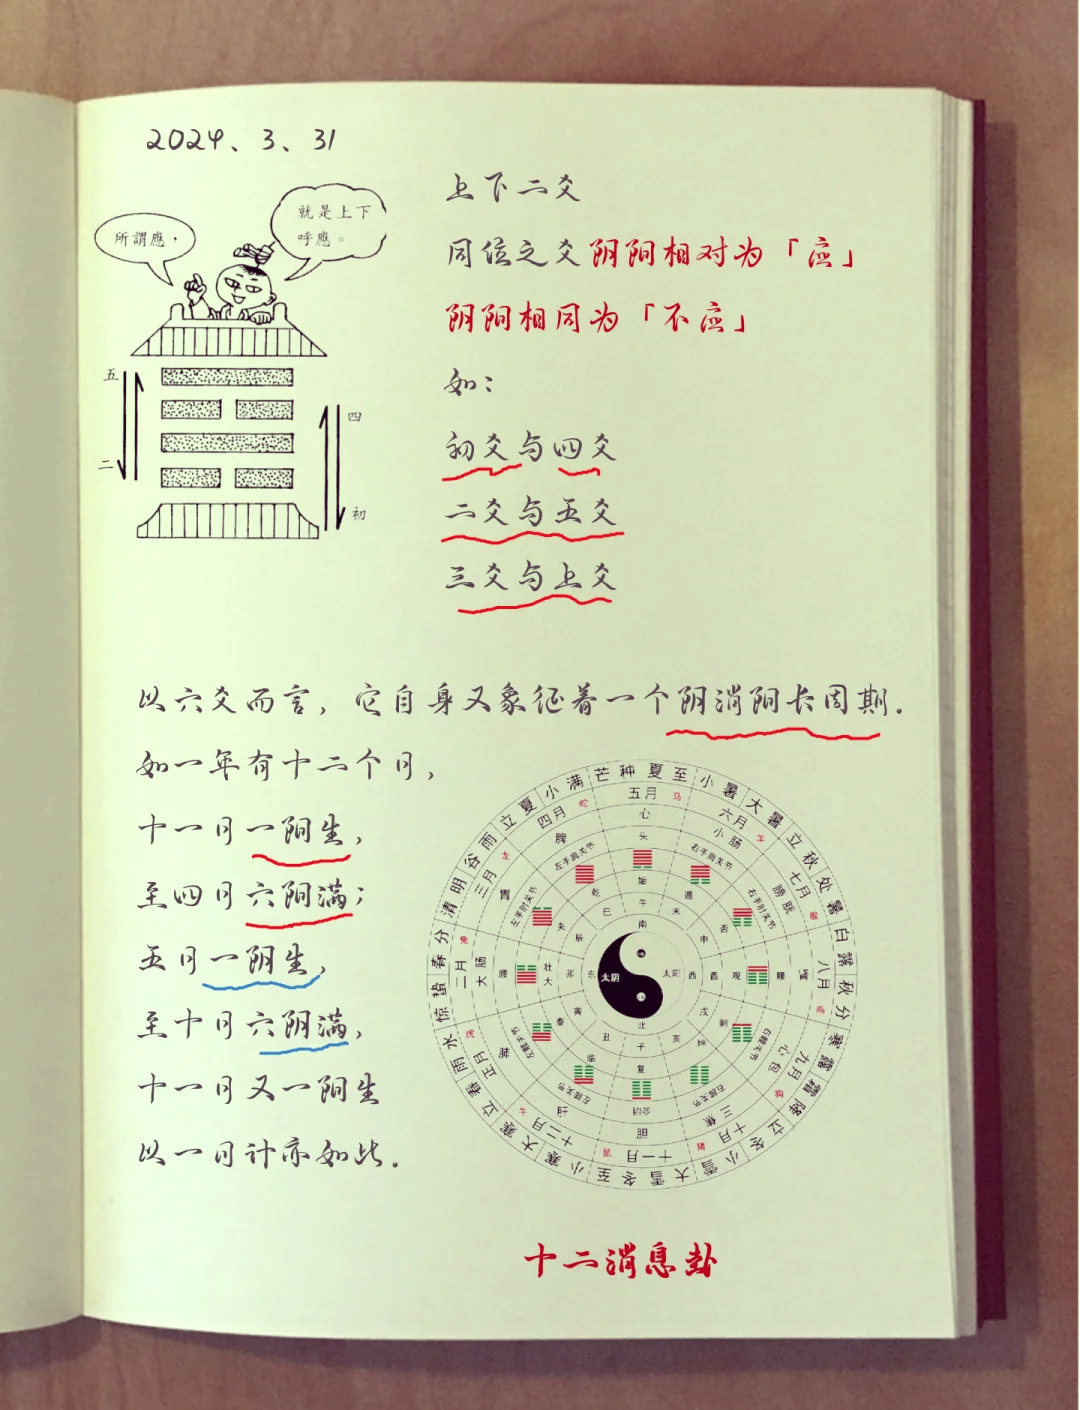 2024、3、31
所謂應，
就是上下
呼應。
五
二
四
初
上下二爻
同位之爻阴阳相对为「应」
阴阳相同为「不应」
如：
初爻与四爻
二爻与五爻
三爻与上爻
以六爻而言，它自身又象征着一个阴消阳长周期.
如一年有十二个月，
十一月一阳生，
至四月六阳满；
五月一阴生，
至十月六阴满，
十一月又一阳生
以一日计亦如此.
芒种 夏至 小暑 大暑 立秋 处暑 白露 秋分 寒露 霜降 立冬 小雪 大雪 冬至 小寒 大寒 立春 雨水 惊蛰 春分 清明 谷雨 立夏 小满
五月 马 六月 羊 七月 猴 八月 鸡 九月 狗 十月 猪 十一月 鼠 十二月 牛 正月 虎 二月 兔 三月 龙 四月 蛇
心 小肠 膀胱 肾 心包 三焦 胆 肝 肺 大肠 胃 脾
头 右手肩关节 右手肘关节 腰 会阴 腰 左手肘关节 左手肩关节
姤 遁 否 观 剥 坤 复 临 泰 大壮 夬 乾
午 未 申 酉 戌 亥 子 丑 寅 卯 辰 巳
南 西 北 东
太阴 太阳
十二消息卦